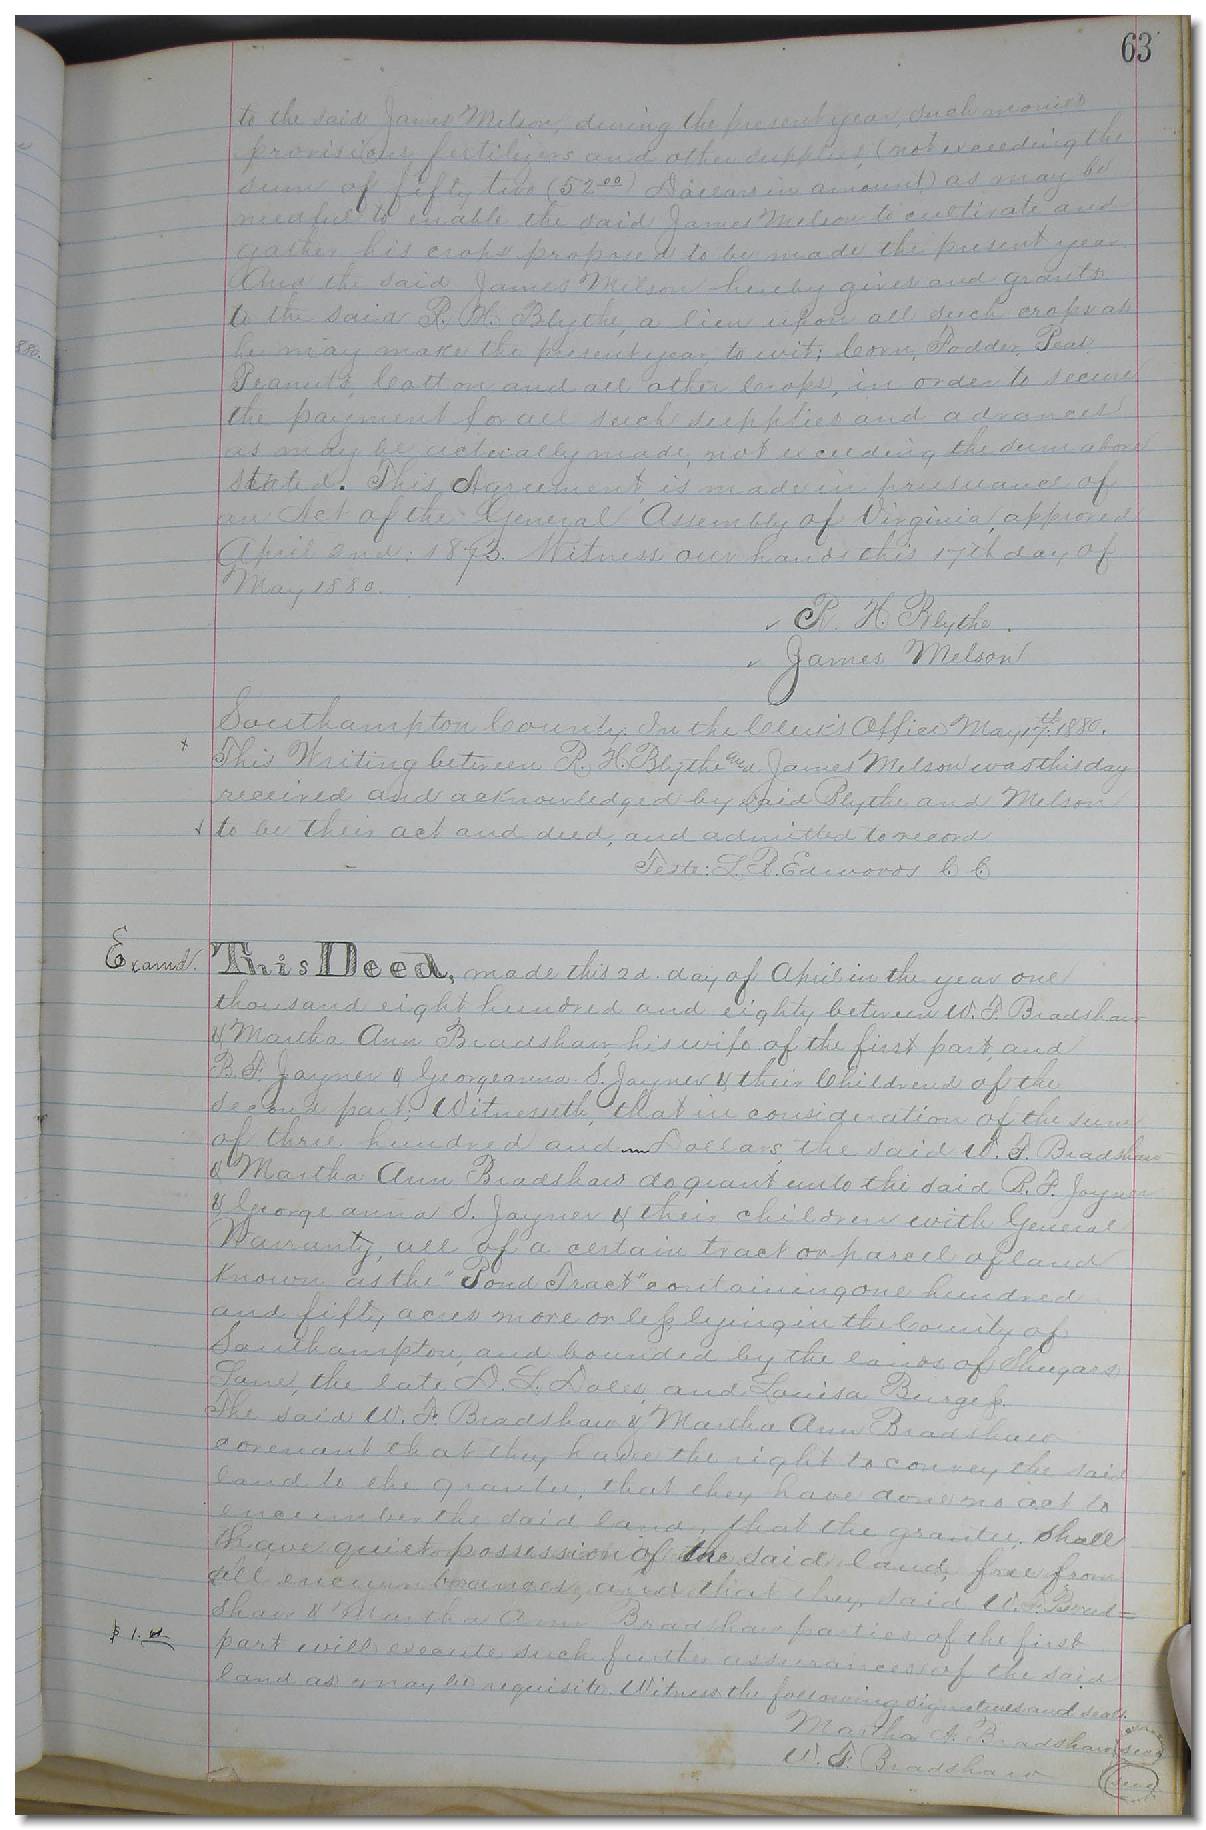 63
to the said James Melson, during the present year, such monies
provisions, fertilizers and other supplies, (not exceeding the
sum of fifty two (52 00) Dollars in amount) as may be
needful to enable the said James Melson to cultivate and
gather his crops proposed to be made the present year.
And the said James Melson hereby gives and grants
to the said R. H. Blythe, a lien upon all such crops as
he may make the present year, to wit; Corn, Fodder, Peas
Peanuts, Cotton and all other Crops, in order to secure
the payment for all such supplies and advances
as may be actually made, not exceeding the sum above
stated. This Agreement is made in pursuance of
an Act of the General Assembly of Virginia, approved
April 2nd: 1873. Witness our hands this 17th day of
May 1880.
R. H. Blythe.
James Melson
880.
Southampton County, In the Clerk's Office May 17th. 1880.
This Writing between R. H. Blythe and James Melson was this day
received and acknowledged by said Blythe and Melson
to be their act and deed, and admitted to record
Teste: L. R. Edwards C C
Examd.
This Deed, made this 2d. day of April in the year one
thousand eight hundred and eighty between W. F. Bradshaw
& Martha Ann Bradshaw his wife of the first part, and
B. F. Joyner & Georgeanna S. Joyner & their Childrend of the
second part; Witnesseth, that in consideration of the sum
of three hundred and Dollars, the said W. F. Bradshaw
& Martha Ann Bradshaw do grant unto the said B. F. Joyner
& Georgeanna S. Joyner & their children with General
Warranty, all of a certain tract or parcel of land
known as the "Pond Tract" containing one hundred
and fifty acres more or less, lying in the County of
Southampton, and bounded by the lands of Shugars
Lane, the late D. L. Doles, and Louisa Burgess.
The said W. F. Bradshaw & Martha Ann Bradshaw
covenant that they have the right to convey the said
land to the grantee, that they have done no act to
encumber the said land, that the grantee, shall
have quiet possession of the said land, free from
all encumbrances, and that they, said W. F. Brad=
shaw & Martha Ann Bradshaw parties of the first
part will execute such further assurances of the said
land as may be requisite. Witness the following signatures and seals.
$1.
Martha A. Bradshaw seal
W. F. Bradshaw seal